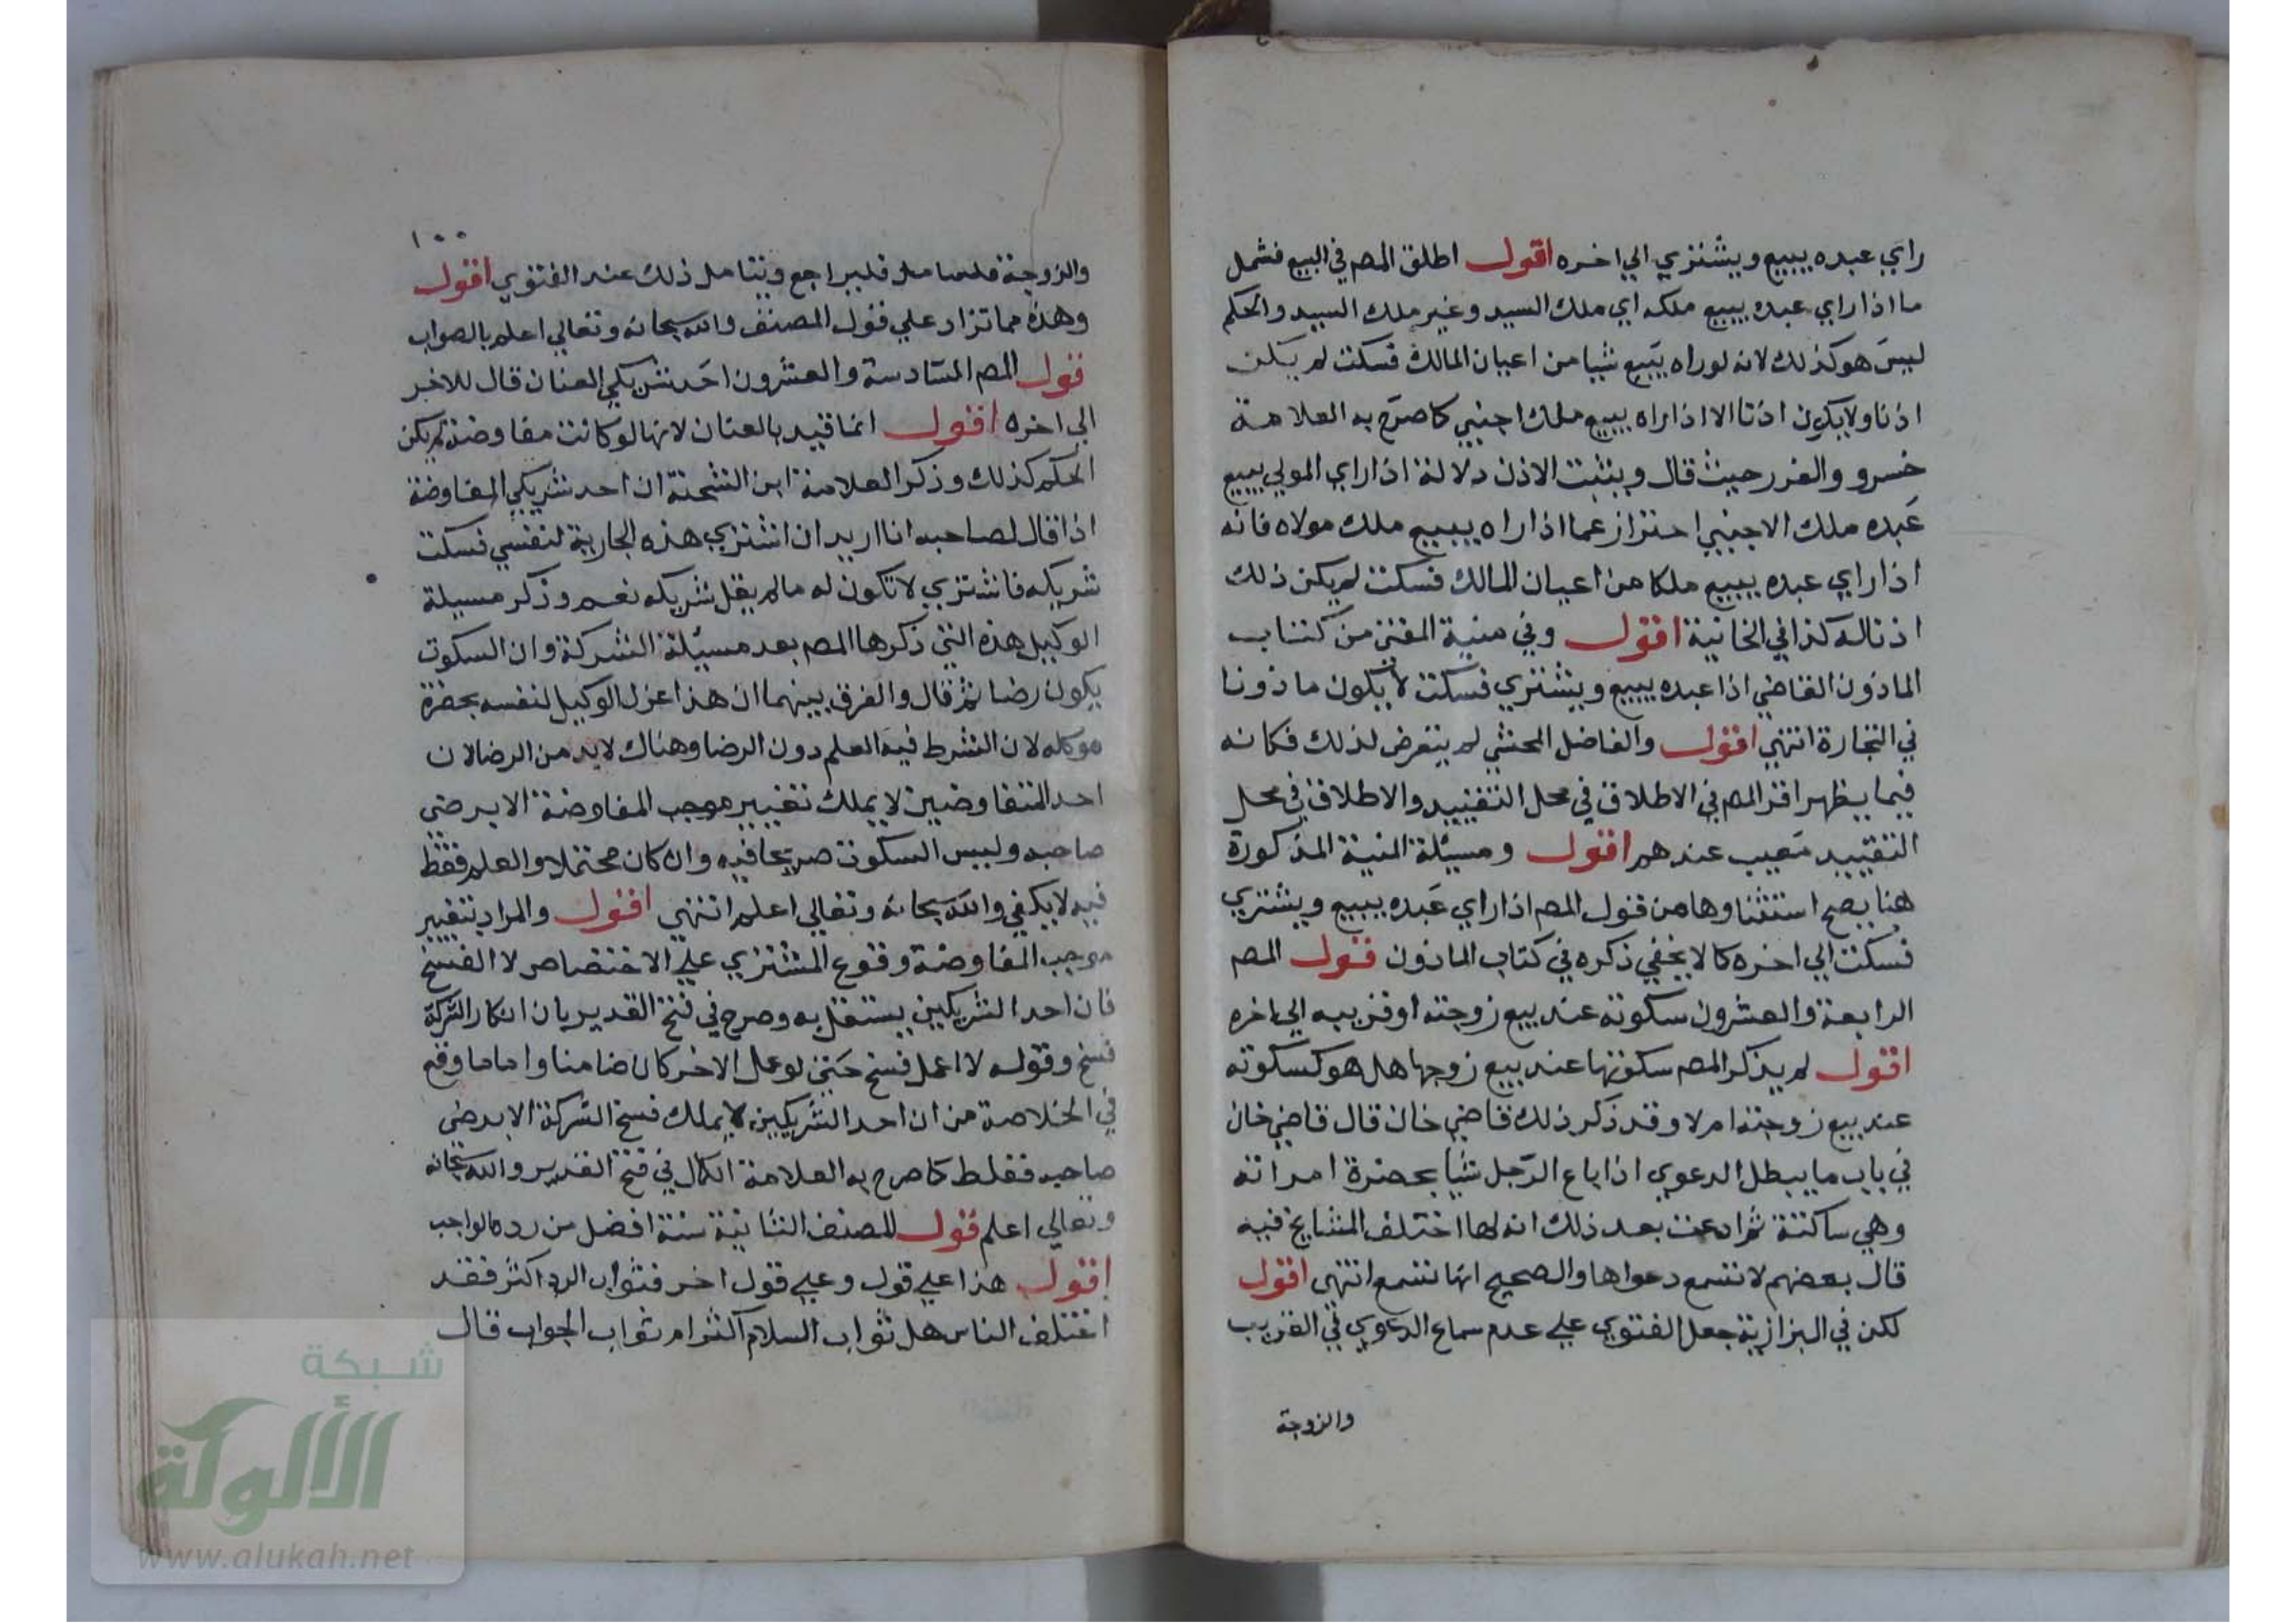 راي عبده يبيع ويشتري الي اخره اقول اطلق المصم في البيع فشمل
ما اذا راي عبده يبيع ملكه اي ملك السيد وغير ملك السيد والحكم
ليس هو كذلك لانه لو راه يبيع شيا من اعيان المالك فسكت لم يكن
اذنا ولا يكون اذنا الا اذا راه يبيع ملك اجنبي كما صرح به العلامة
خسرو والغرر حيث قال ويثبت الاذن دلالة اذا راي المولي يبيع
عبده ملك الاجنبي احتراز عما اذا راه يبيع ملك مولاه فانه
اذا راي عبده يبيع ملكا من اعيان المالك فسكت لم يكن ذلك
اذنا له كذا في الخانية اقول وفي منية المفتي من كتاب
الماذون القاضي اذا عبده يبيع ويشتري فسكت لا يكون ماذونا
في التجارة انتهي اقول والفاضل المحشي لم يتعرض لذلك فكانه
فيما يظهر اقر المصم في الاطلاق في محل التقييد والاطلاق في محل
التقييد معيب عندهم اقول ومسئلة المنية المذكورة
هنا يصح استثناوها من قول المصم اذا راي عبده يبيع ويشتري
فسكت الي اخره كما لا يخفي ذكره في كتاب الماذون قول المصم
الرابعة والعشرون سكوته عند بيع زوجته او قريبه الي اخره
اقول لم يذكر المصم سكوتها عند بيع زوجها هل هو كسكوته
عند بيع زوجته ام لا وقد ذكر ذلك قاضي خان قال قاضي خان
في باب ما يبطل الدعوي اذا باع الرجل شيا بحضرة امراته
وهي ساكتة ثم ادعت بعد ذلك انه لها اختلف المشايخ فيه
قال بعضهم لا تسمع دعواها والصحيح انها تسمع انتهي اقول
لكن في البزازية جعل الفتوي علي عدم سماع الدعوي في القريب
والزوجة
١٠٠
والزوجة فليراجع ويتامل ذلك عند الفتوي اقول
وهذه مما تزاد علي قول المصنف والله سبحانه وتعالي اعلم بالصواب
قول المصم السادسة والعشرون احد شريكي العنان قال للاخر
الي اخره اقول انما قيد بالعنان لانها لو كانت مفاوضة لم يكن
الحكم كذلك وذكر العلامة ابن الشحنة ان احد شريكي المفاوضة
اذا قال لصاحبه انا اريد ان اشتري هذه الجارية لنفسي فسكت
شريكه فاشتري لا تكون له ما لم يقل شريكه نعم وذكر مسيلة
الوكيل هذه التي ذكرها المصم بعد مسيلة الشركة وان السكوت
يكون رضا ثم قال والفرق بينهما ان هذا عزل الوكيل لنفسه بحضرة
موكله لان الشرط فيه العلم دون الرضا وهناك لابد من الرضا لان
احد المتفاوضين لا يملك تغيير موجب المفاوضة الا برضي
صاحبه وليس السكوت صريحا فيه وان كان محتملا والعلم فقط
فيه لا يكفي والله سبحانه وتعالي اعلم انتهي اقول والمراد بتغيير
موجب المفاوضة وقوع المشتري علي الاختصاص لا الفسخ
فان احد الشريكين يستقل به وصرح في فتح القدير بان انكار الشركة
فسخ وقوله لا اعمل فسخ حتي لو عمل الاخر كان ضامنا واما ما وقع
في الخلاصة من ان احد الشريكين لا يملك فسخ الشركة الا برضي
صاحبه فغلط كما صرح به العلامة الكمال في فتح القدير والله سبحانه
وتعالي اعلم قول للمصنف الثانية سنة افضل من رده الواجب
اقول هذا علي قول وعلي قول اخر فثواب الرد اكثر فقد
اختلف الناس هل ثواب السلام اكثر ام ثواب الجواب قال
شبكة
الألوكة
www.alukah.net